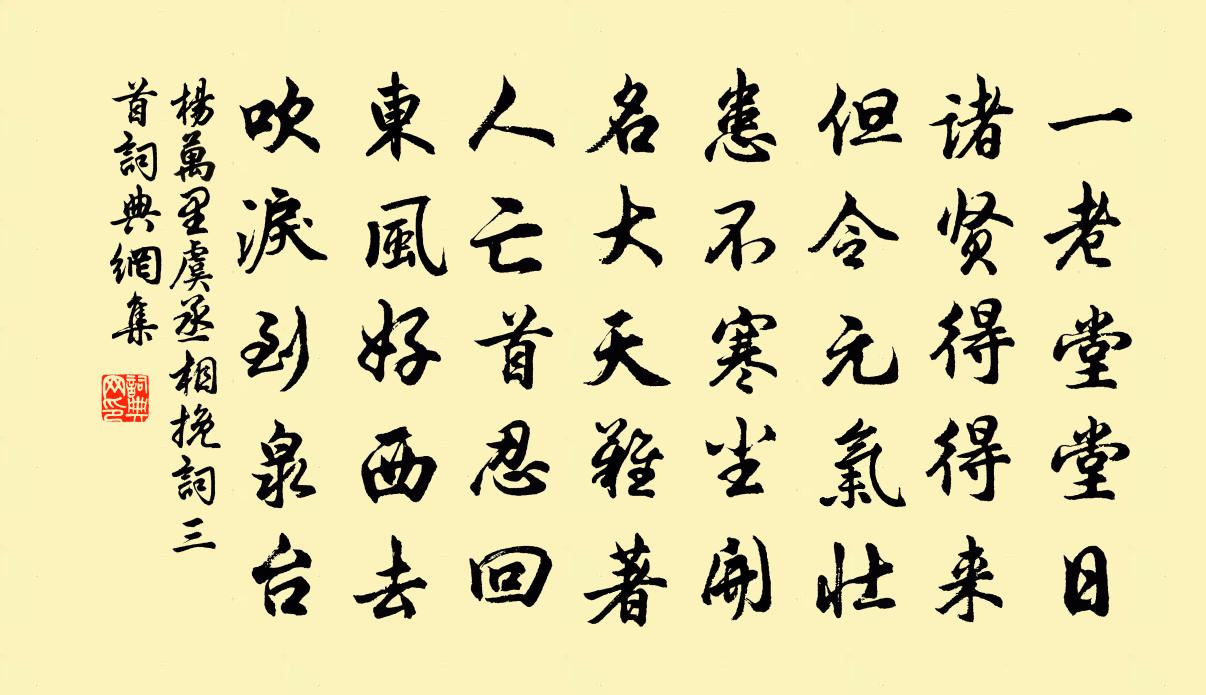 一老堂堂日
诸贤得得来
但令元氣壮
患不寒尘開
名大天難著
人亡首忍回
東風好西去
吹淚到泉台
楊萬里虞丞相挽詞三
首詞典網集
詞典网印